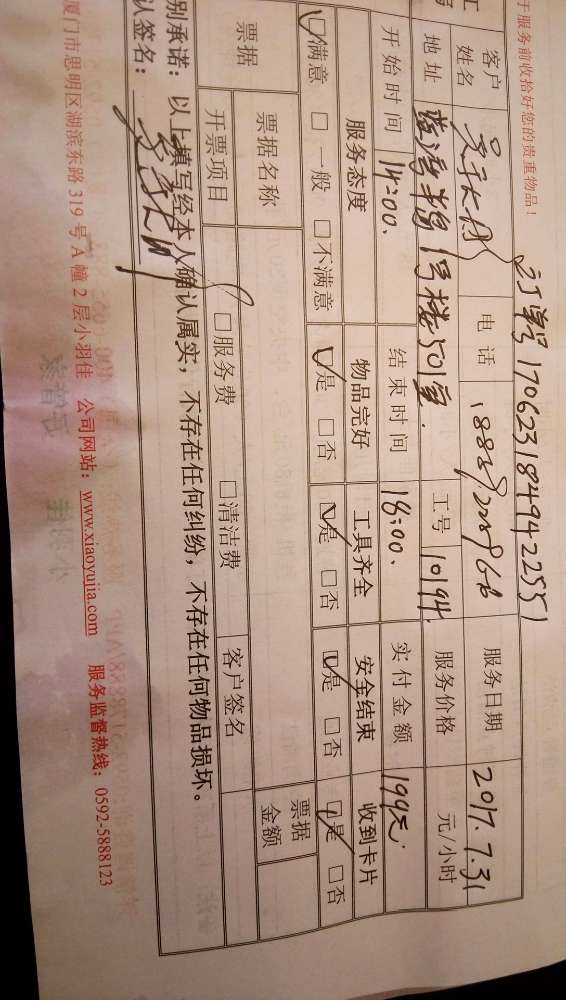 于服务前收拾好您的贵重物品！
订单号 1706231849422551
客户姓名 电话 服务日期 2017.7.31
地址 蓝湾半岛1号楼501室. 工号 10194. 服务价格 元/小时
开始时间 14:00. 结束时间 18:00. 实付金额 199元
服务态度 物品完好 工具齐全 安全结束 收到卡片
☑满意 □一般 □不满意 ☑是 □否 ☑是 □否 ☑是 □否 ☑是 □否
票据 票据名称 票据金额
开票项目 □服务费 □清洁费 客户签名
别承诺：以上填写经本人确认属实，不存在任何纠纷，不存在任何物品损坏。
认签名：
厦门市思明区湖滨东路 319 号 A 幢 2 层小羽佳 公司网站：www.xiaoyujia.com 服务监督热线：0592-5888123